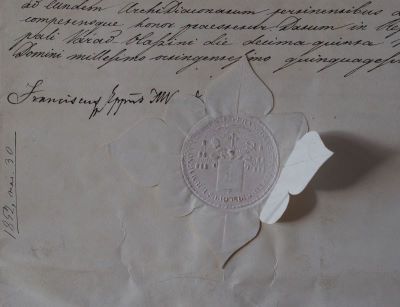 ad eundem Archidiaconatum pertinentibus a
competensque honor praestetur. Datum in
pali Várad Olaszini die decima quinta
Domini millesimo octingentesimo quinquages
Franciscus Eppus MV
1852, mai. 30